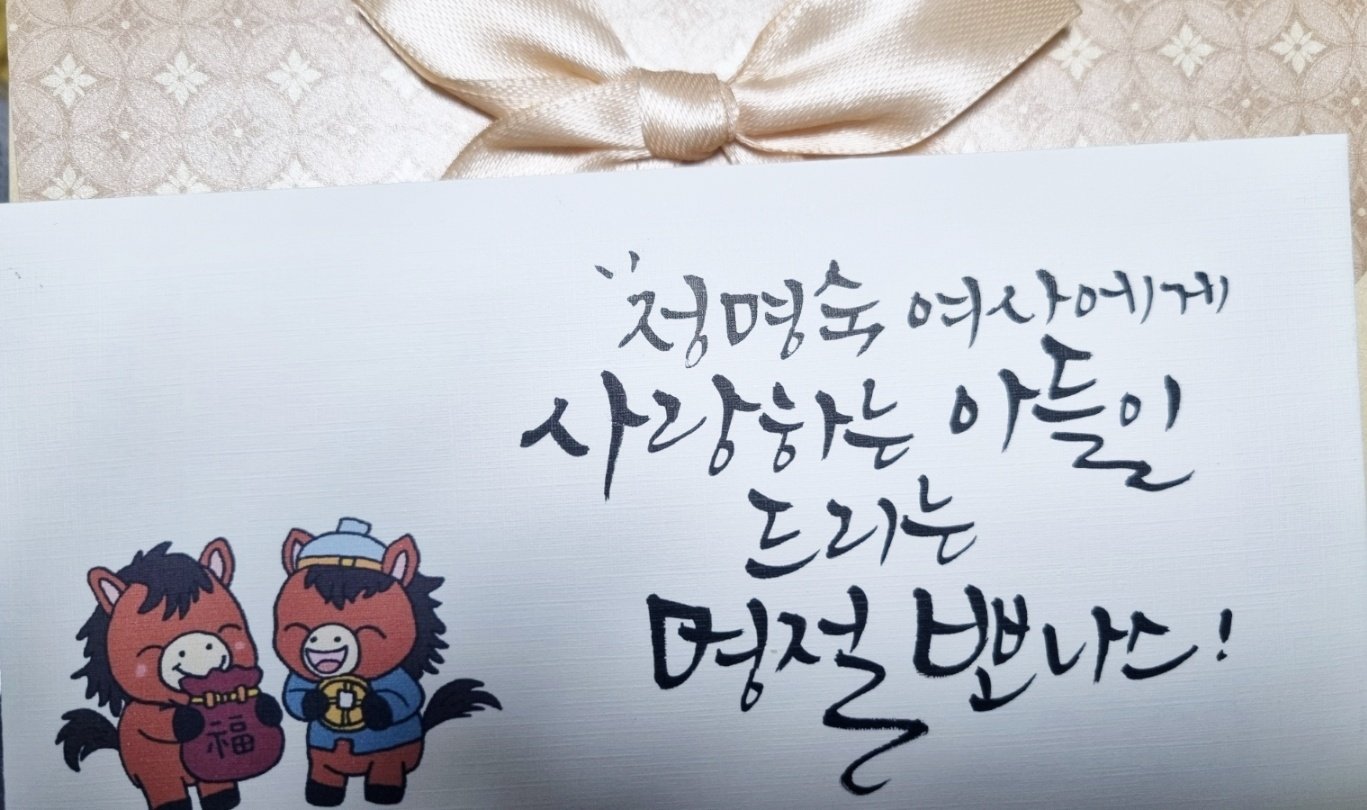 "정명숙 여사에게
사랑하는 아들이
드리는
명절 뽀나스!
福